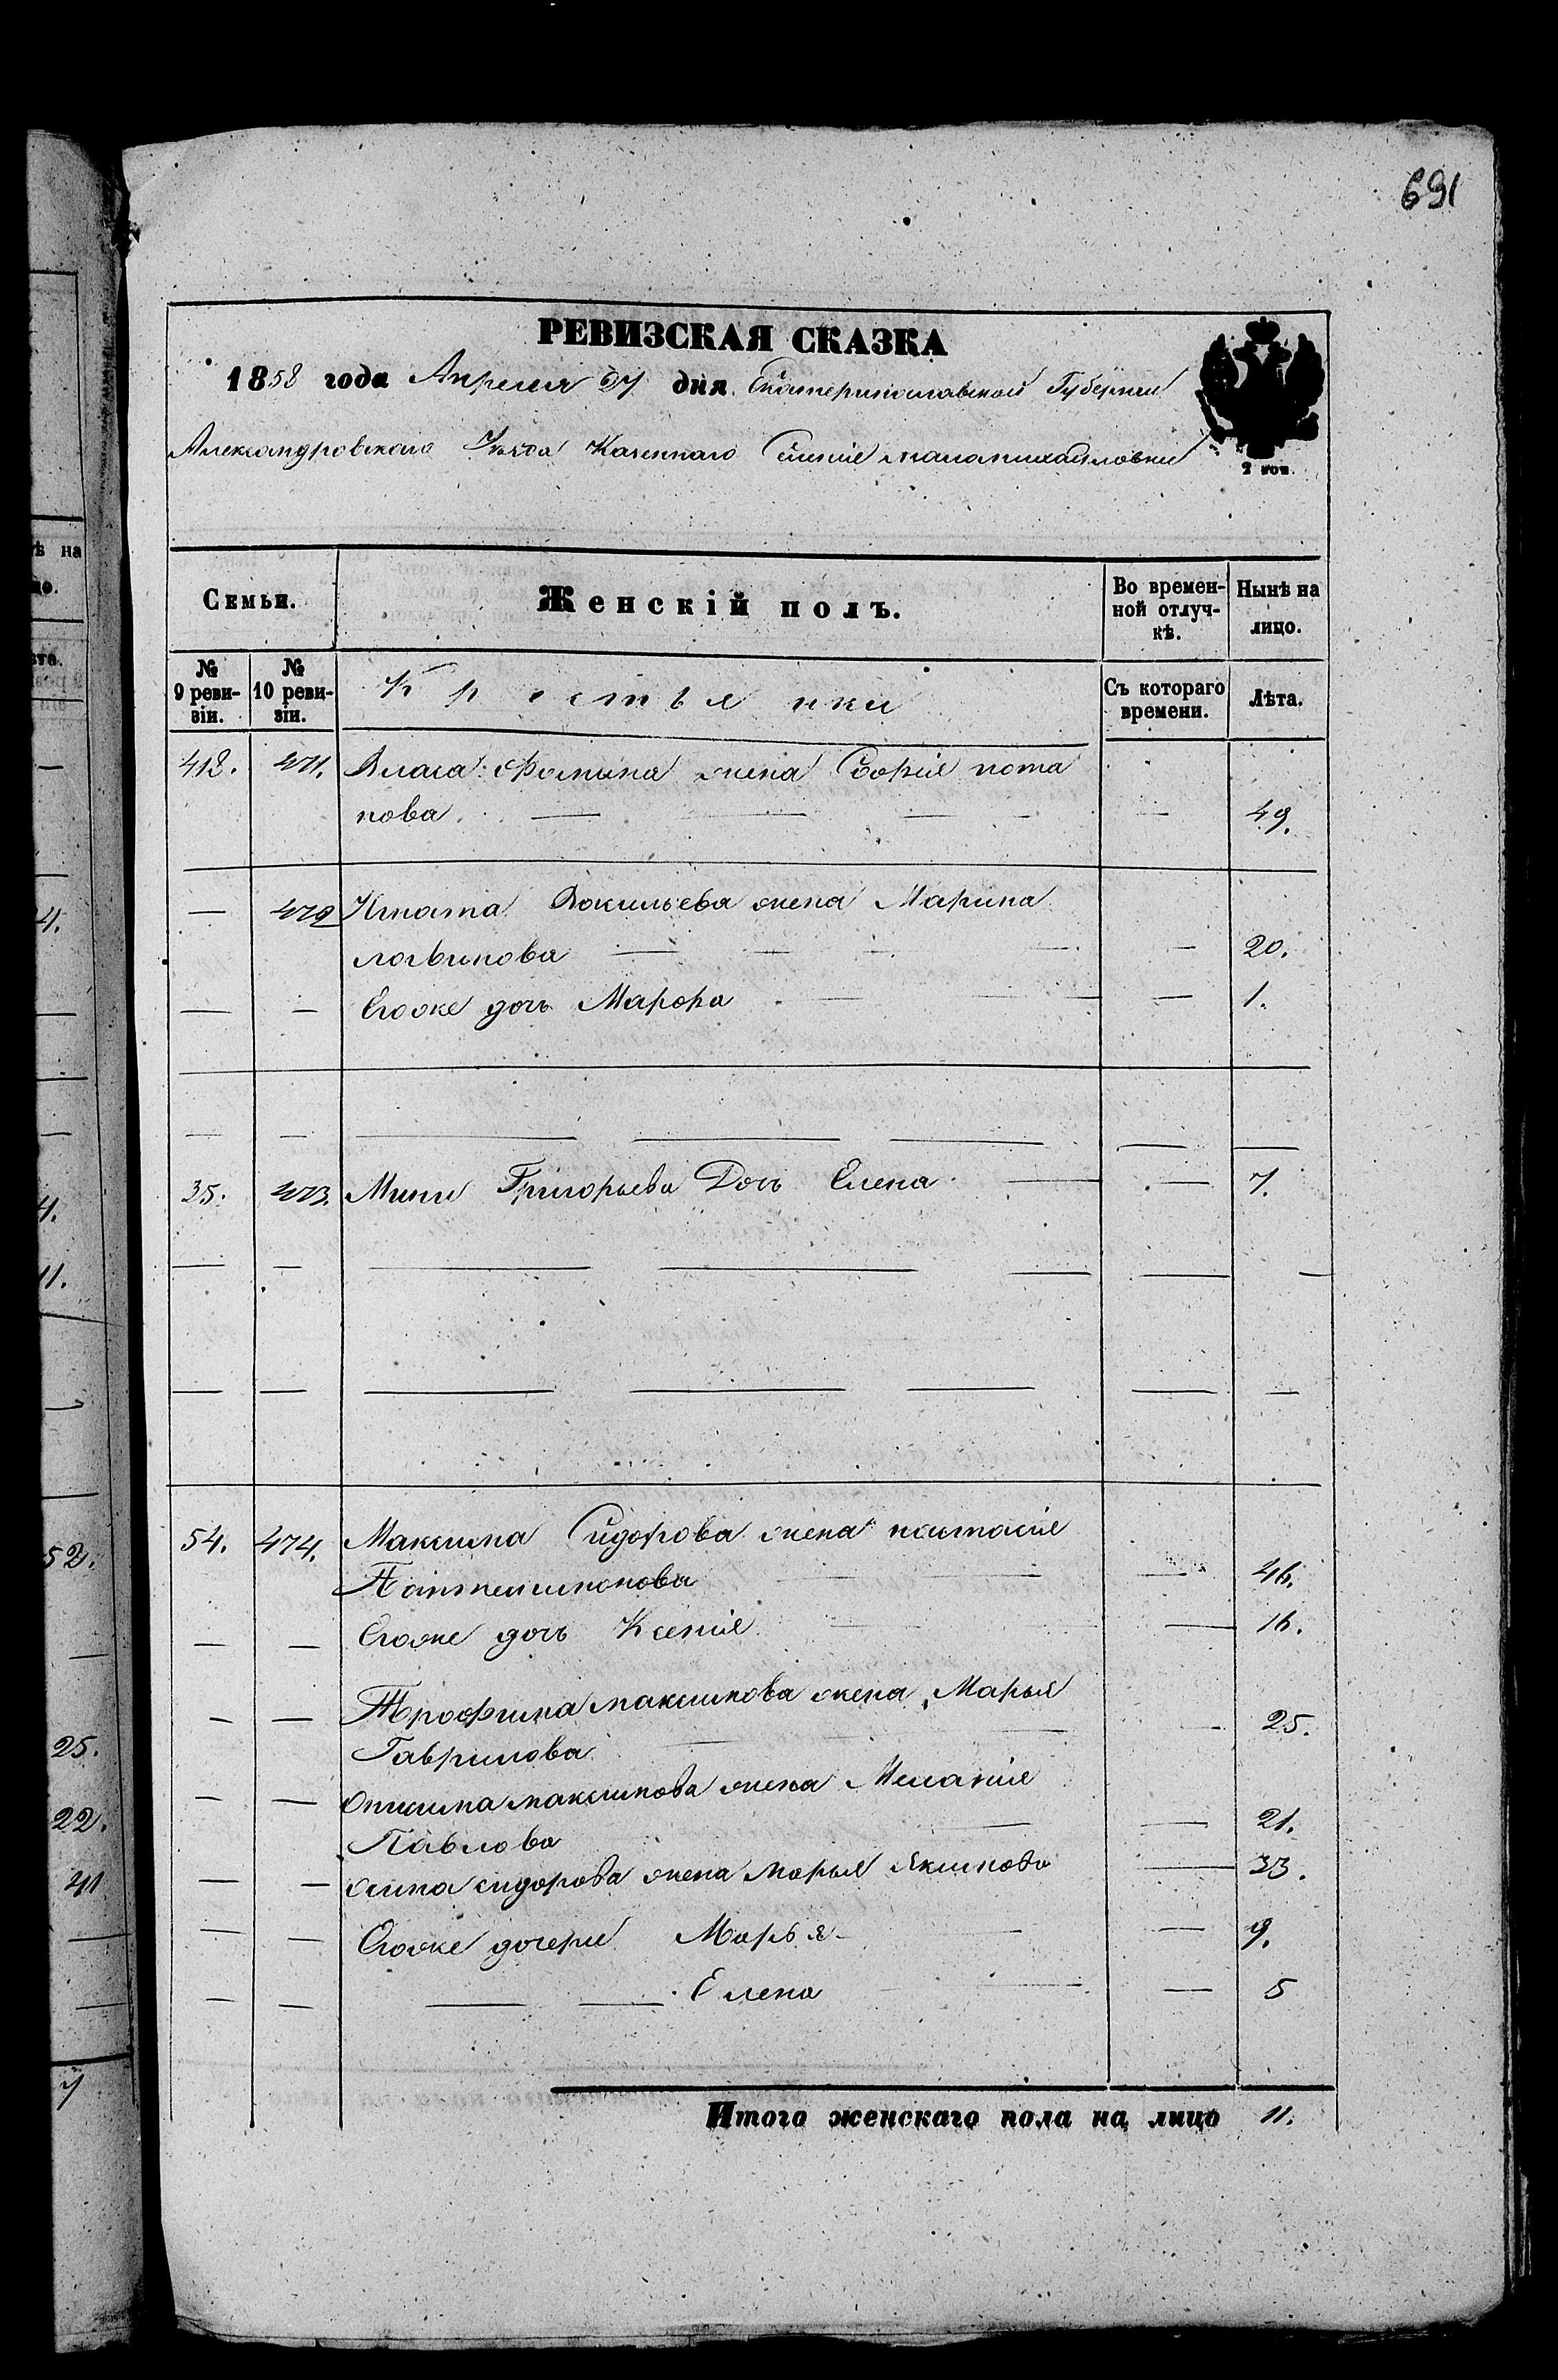 691
РЕВИЗСКАЯ СКАЗКА
1858 года Апреля 27 дня. Екатеринославской Губернии
Александровскаго Уѣзда Казеннаго Селенія маламихайловки
2 коп.
Семьи.
Женскій полъ.
Во времен-
ной отлуч-
кѣ.
Нынѣ на
лицо.
№
9 реви-
зіи.
№
10 реви-
зіи.
Крестьянки
Съ котораго
времени.
Лѣта.
412. 471. Власа Фомина жена Софія пота
пова — — — — 49.
— 472 Игната Васильева жена Марина
логвинова — — — — — 20.
— — Егоже дочь Марфа — — — 1.
— — — — — — —
35. 473. Мини Григорьева Дочь Елена — — 7.
— — — — — — —
— — — — — — —
54. 474. Максима Сидорова жена настасія
Пантелимонова — — — 46.
— — Егоже дочь Ксенія — — — 16.
— — Трофима максимова жена Марья
Гаврилова — — — 25.
— — Онисима максимова жена Меланія
Павлова — — 21.
— — осипа сидорова жена Марья Якимова — 33.
— — Егоже дочери Марья — — 9.
— — — — Елена — — 5
Итого женскаго пола на лицо 11.
ѣ на
цо.
4.
4.
11.
52.
25.
22.
41
7